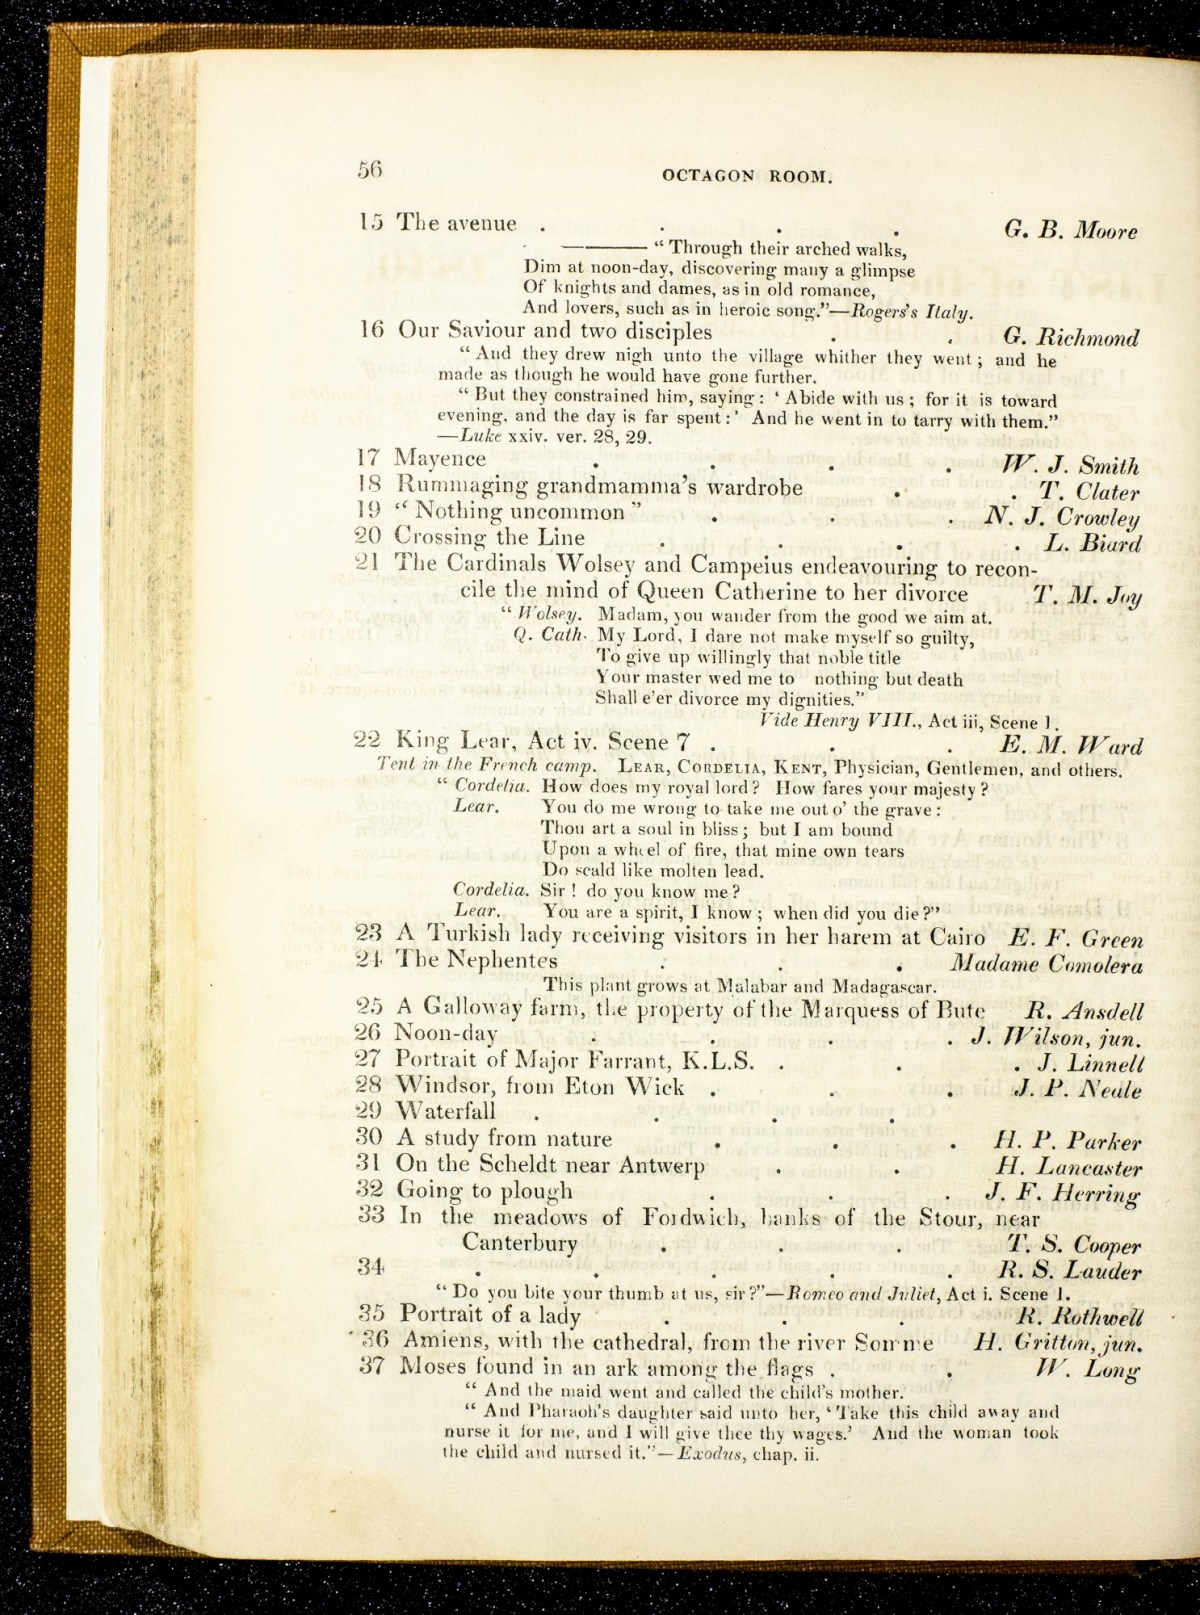 56
OCTAGON ROOM.
15 The avenue . . . . G. B. Moore
——— “ Through their arched walks,
Dim at noon-day, discovering many a glimpse
Of knights and dames, as in old romance,
And lovers, such as in heroic song.”—Rogers's Italy.
16 Our Saviour and two disciples . . G. Richmond
“ And they drew nigh unto the village whither they went ; and he
made as though he would have gone further.
“ But they constrained him, saying : ‘ Abide with us ; for it is toward
evening, and the day is far spent :’ And he went in to tarry with them.”
—Luke xxiv. ver. 28, 29.
17 Mayence . . . . W. J. Smith
18 Rummaging grandmamma's wardrobe . . T. Clater
19 “ Nothing uncommon ” . . . N. J. Crowley
20 Crossing the Line . . . . L. Biard
21 The Cardinals Wolsey and Campeius endeavouring to recon-
cile the mind of Queen Catherine to her divorce T. M. Joy
“ Wolsey. Madam, you wander from the good we aim at.
Q. Cath. My Lord, I dare not make myself so guilty,
To give up willingly that noble title
Your master wed me to nothing but death
Shall e'er divorce my dignities.”
Vide Henry VIII., Act iii, Scene 1.
22 King Lear, Act iv. Scene 7 . . . E. M. Ward
Tent in the French camp. LEAR, CORDELIA, KENT, Physician, Gentlemen, and others.
“ Cordelia. How does my royal lord ? How fares your majesty ?
Lear. You do me wrong to take me out o' the grave :
Thou art a soul in bliss ; but I am bound
Upon a wheel of fire, that mine own tears
Do scald like molten lead.
Cordelia. Sir ! do you know me ?
Lear. You are a spirit, I know ; when did you die ?”
23 A Turkish lady receiving visitors in her harem at Cairo E. F. Green
24 The Nephentes . . . Madame Comolera
This plant grows at Malabar and Madagascar.
25 A Galloway farm, the property of the Marquess of Bute R. Ansdell
26 Noon-day . . . . J. Wilson, jun.
27 Portrait of Major Farrant, K.L.S. . . . J. Linnell
28 Windsor, from Eton Wick . . . J. P. Neale
29 Waterfall . . . .
30 A study from nature . . . H. P. Parker
31 On the Scheldt near Antwerp . . H. Lancaster
32 Going to plough . . . J. F. Herring
33 In the meadows of Fordwich, banks of the Stour, near
Canterbury . . . T. S. Cooper
34 . . . . . R. S. Lauder
“ Do you bite your thumb at us, sir ?”—Romeo and Juliet, Act i. Scene 1.
35 Portrait of a lady . . . R. Rothwell
36 Amiens, with the cathedral, from the river Somme H. Gritton, jun.
37 Moses found in an ark among the flags . . W. Long
“ And the maid went and called the child's mother.
“ And Pharaoh's daughter said unto her, ‘ Take this child away and
nurse it for me, and I will give thee thy wages.’ And the woman took
the child and nursed it.”—Exodus, chap. ii.